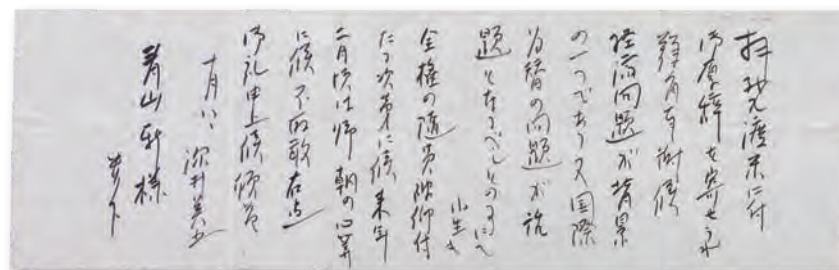 拝啓 渡米に付
御厚辞を寄せられ
奉謝候
経済問題が背景
の一つである又国際
為替の問題が論
題となるべしとの事にて
小生も
全権の随員被仰付
たる次第に候 来年
二月頃は帰朝の心算
に候 不取敢右迄
御礼申上候 頓首
十月
深井英五
青山 様